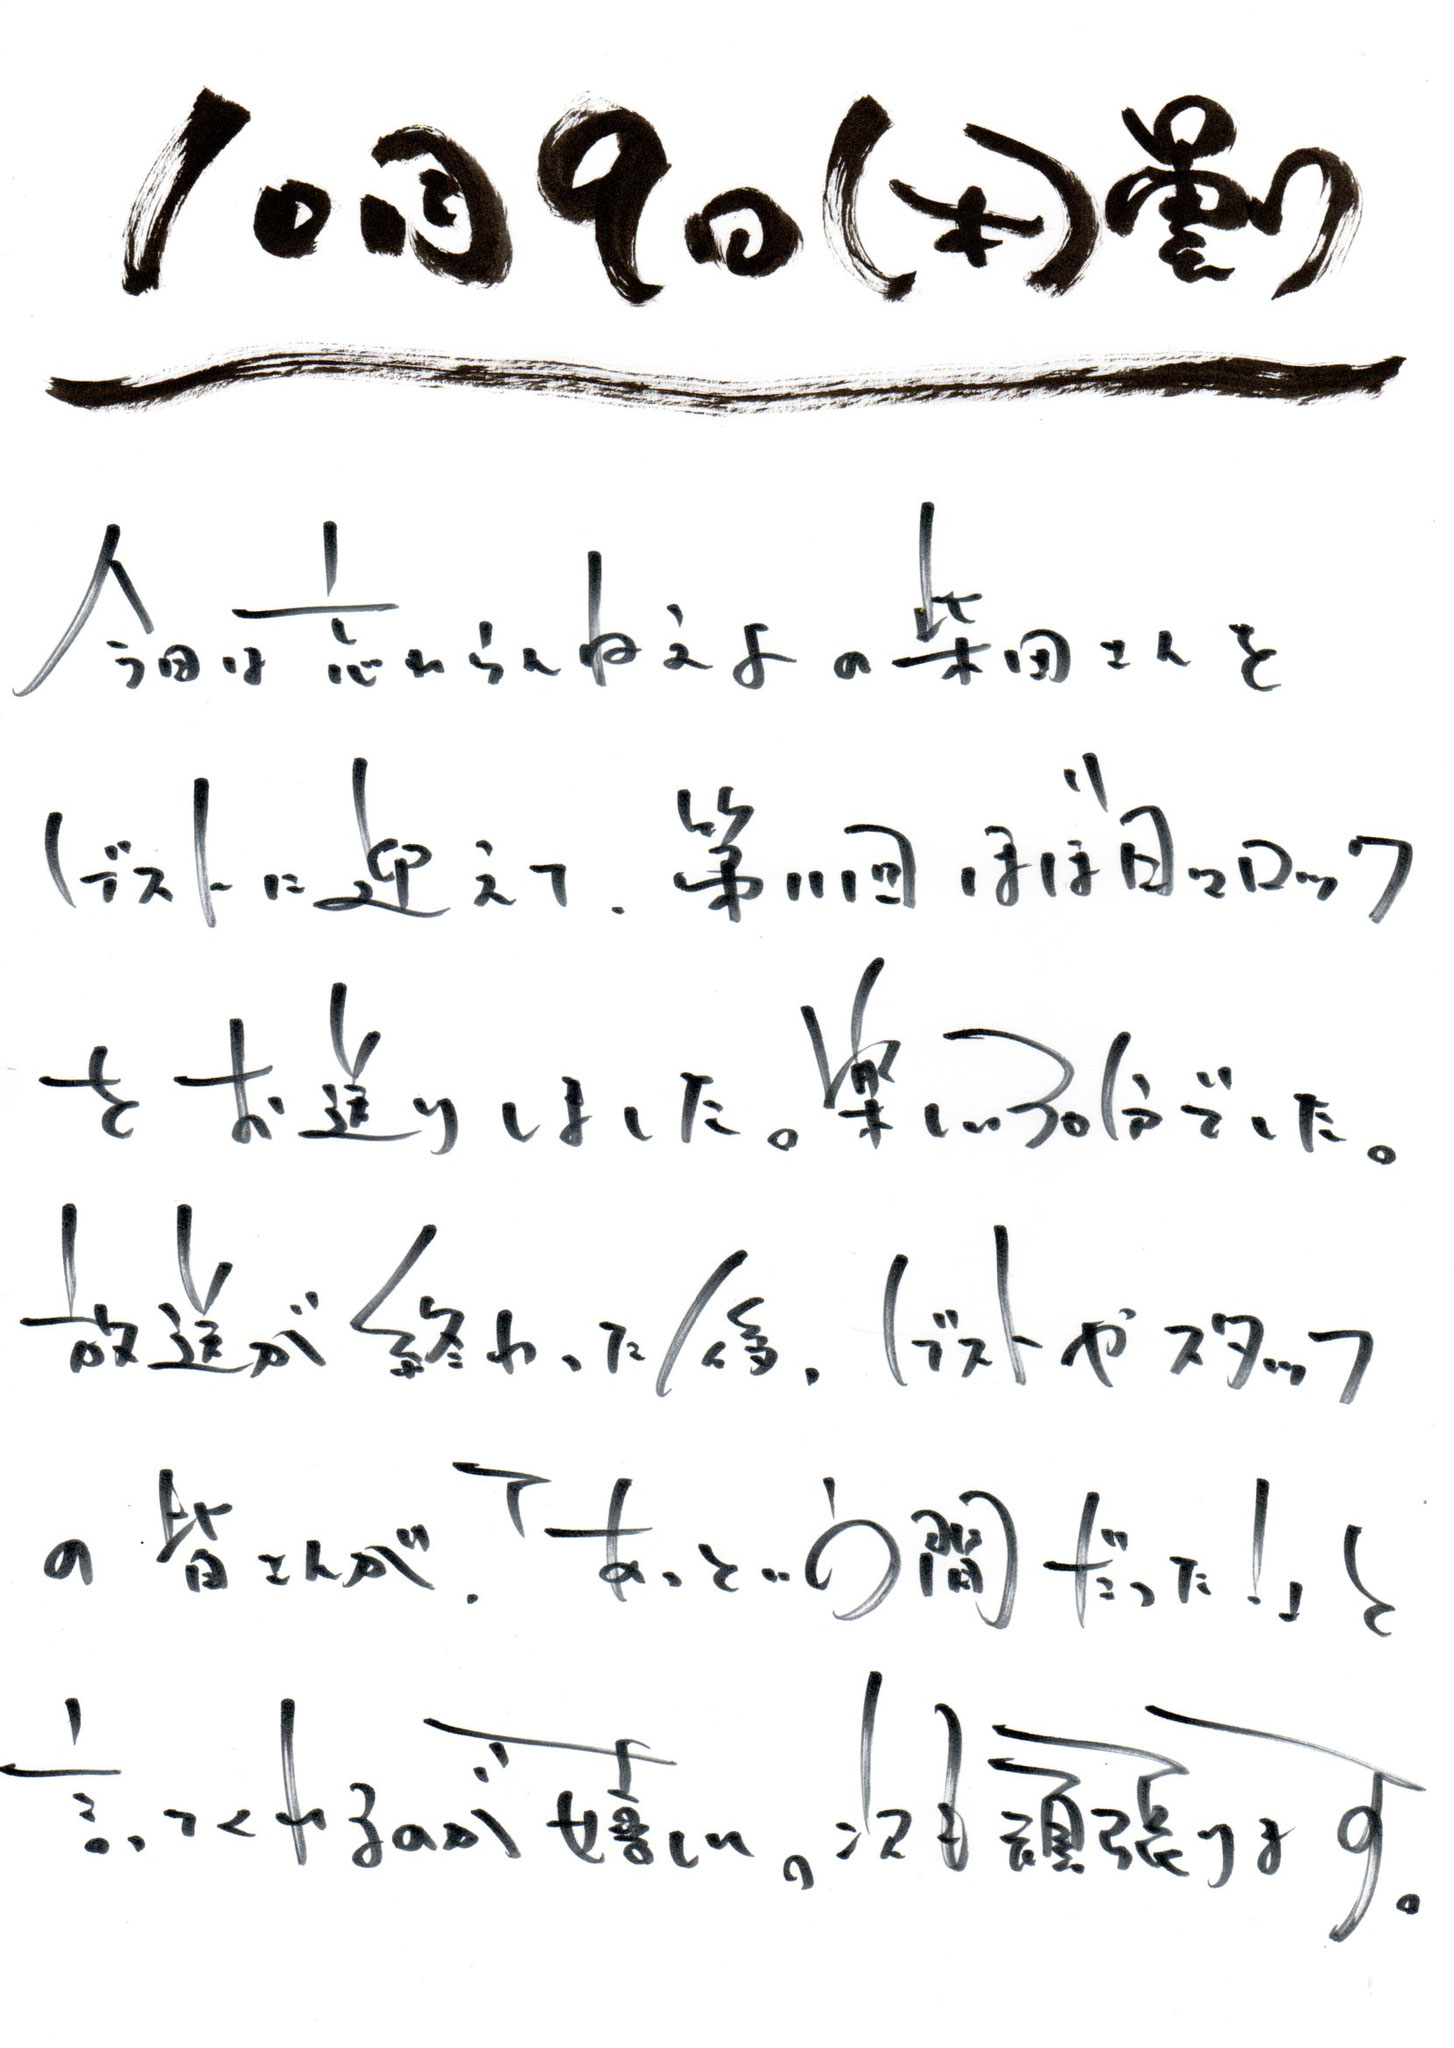 10月9日(木)曇り
今回は忘れらんねえよの柴田さんを
ゲストに迎えて、第111回 ほぼ ロック
をお送りしました。楽しい30分でした。
放送が終わった後、ゲストやスタッフ
の皆さんが、「あっという間だった!」と
言ってくれるのが嬉しい。次も頑張ります。